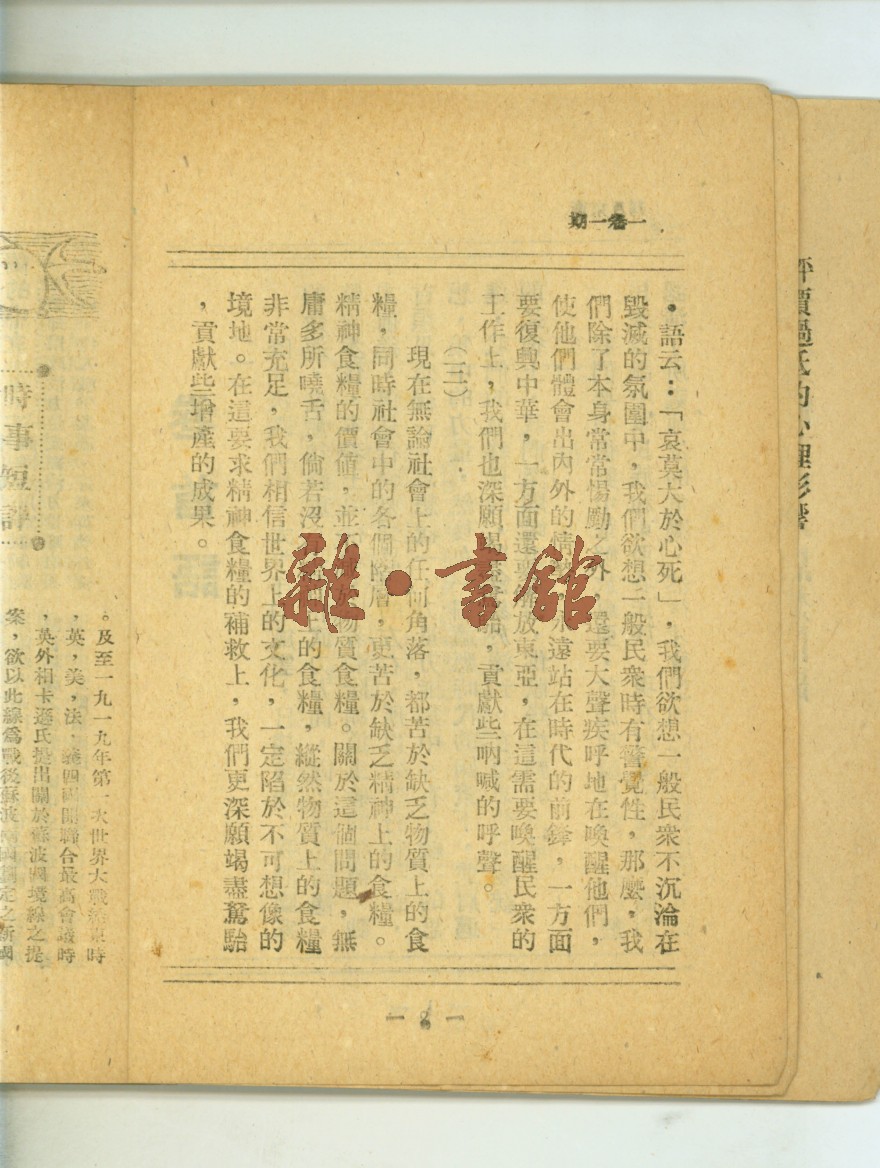 一卷一期
。語云：「哀莫大於心死」，我們欲想一般民衆不沉淪在
毀滅的氛圍中，我們欲想一般民衆時有警覺性，那麽，我
們除了本身常常惕勵之外，還要大聲疾呼地在喚醒他們，
使他們體會出內外的情 永遠站在時代的前鋒，一方面
要復興中華，一方面還要 放東亞，在這需要喚醒民衆的
工作上，我們也深願竭盡駑駘，貢獻些吶喊的呼聲。
（三）
現在無論社會上的任何角落，都苦於缺乏物質上的食
糧，同時社會中的各個階層，更苦於缺乏精神上的食糧。
精神食糧的價値，並不 於物質食糧。關於這個問題，無
庸多所曉舌，倘若沒 上的食糧，縱然物質上的食糧
非常充足，我們相信世界上的文化，一定陷於不可想像的
境地。在這要求精神食糧的補救上，我們更深願竭盡駑駘
，貢獻些增產的成果。
雜·書館
— 2 —
評價過氐的心理影響
時事短評
。及至一九一九年第一次世界大戰結束時
，英，美，法，義四國開聯合最高會議時
，英外相卡遜氏提出關於蘇波國境線之提
案，欲以此線爲戰後蘇波 國 定之新國